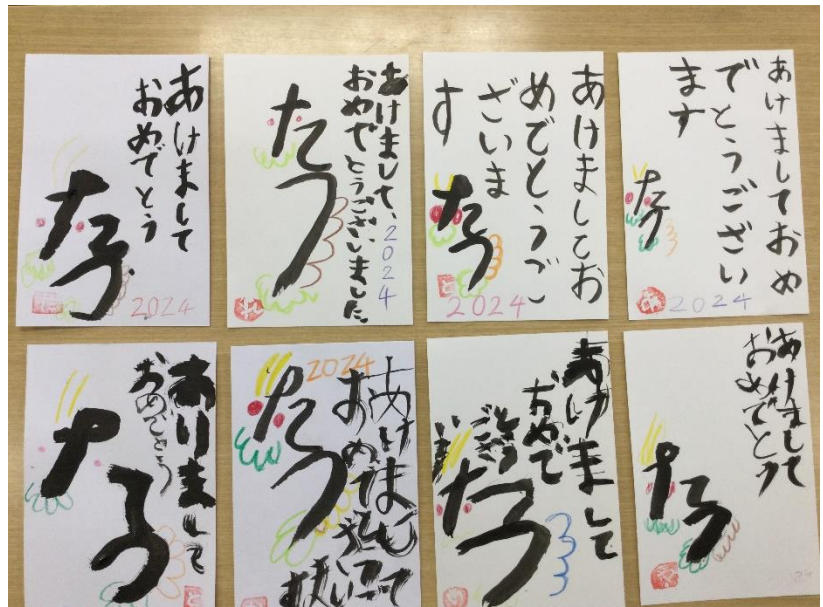 あけまして
おめでとう
たつ
2024
あけまして、
おめでとうございました。
2024
たつ
あけましてお
めでとうご
ざいま
す
たつ
2024
あけましておめ
でとうござい
ます
たつ
2024
あけまして
おめでとう
たつ
2024
あけまして
おめで
たつ
あけまして
おめで
とう
ござ
たつ
あけまして
おめでとう
たつ